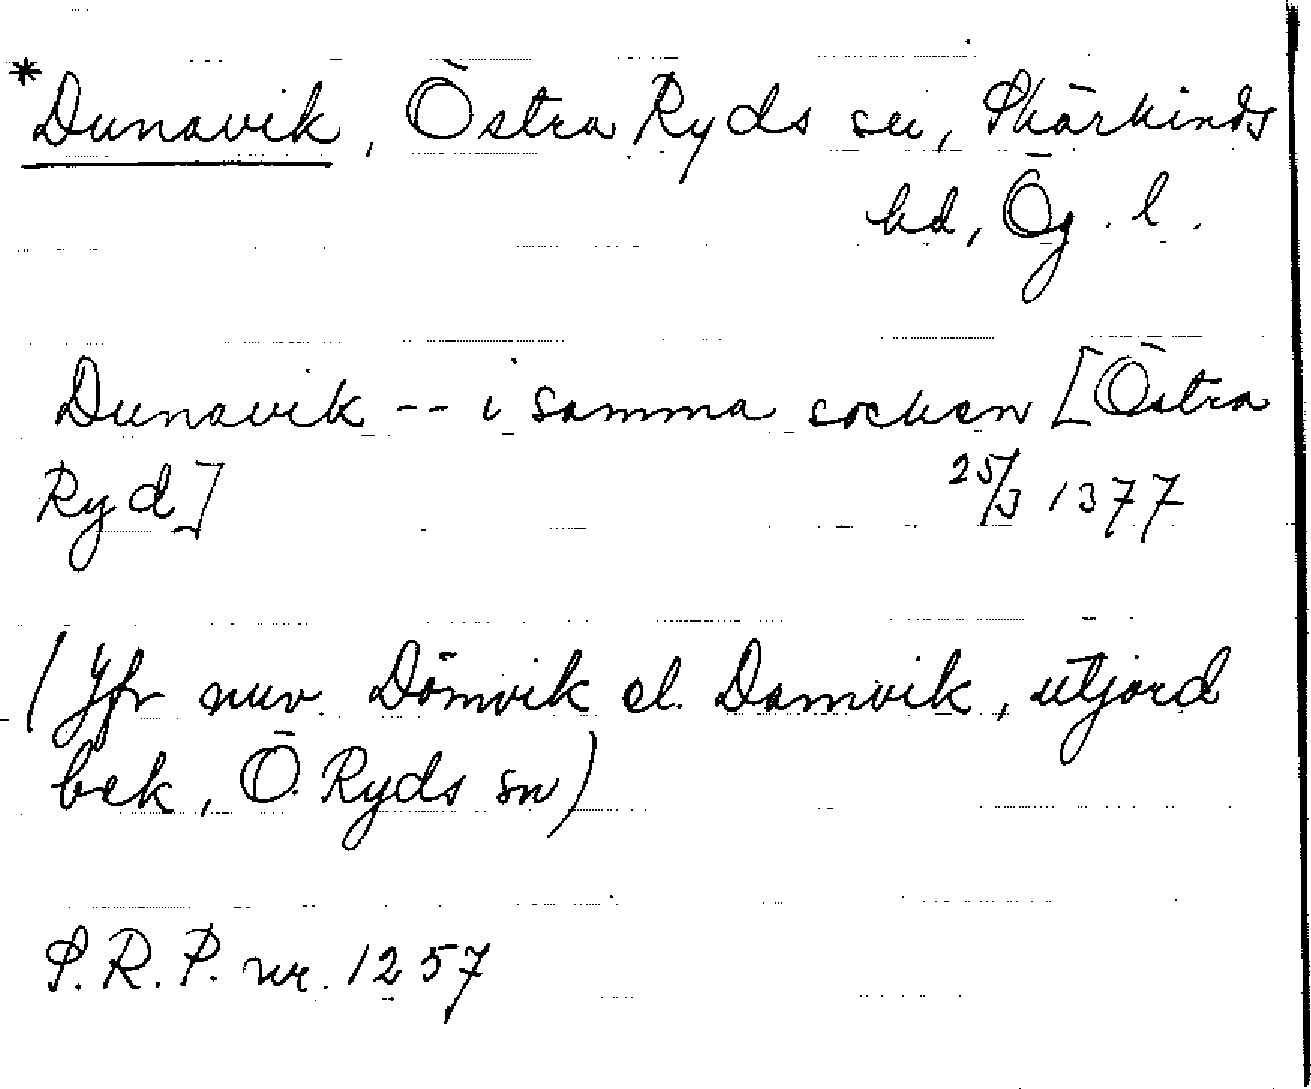 *Dunavik, Östra Ryds sn, Skärkinds
hd, Ög. l.
Dunavik -- i samma socken [Östra
Ryd] 25/3 1377
(Jfr nuv. Dömvik el. Damvik, utjord
bek, Ö. Ryds sn)
S.R.P. nr. 1257